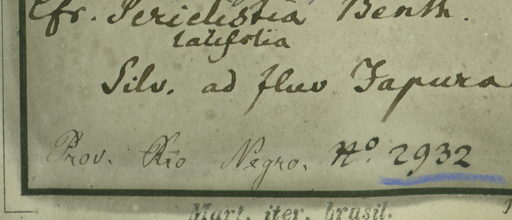 Cfr. Peridistia Benth.
latifolia
Silv. ad fluv Japura
Prov. Rio Negro. No. 2932
Mart. iter. brasil.